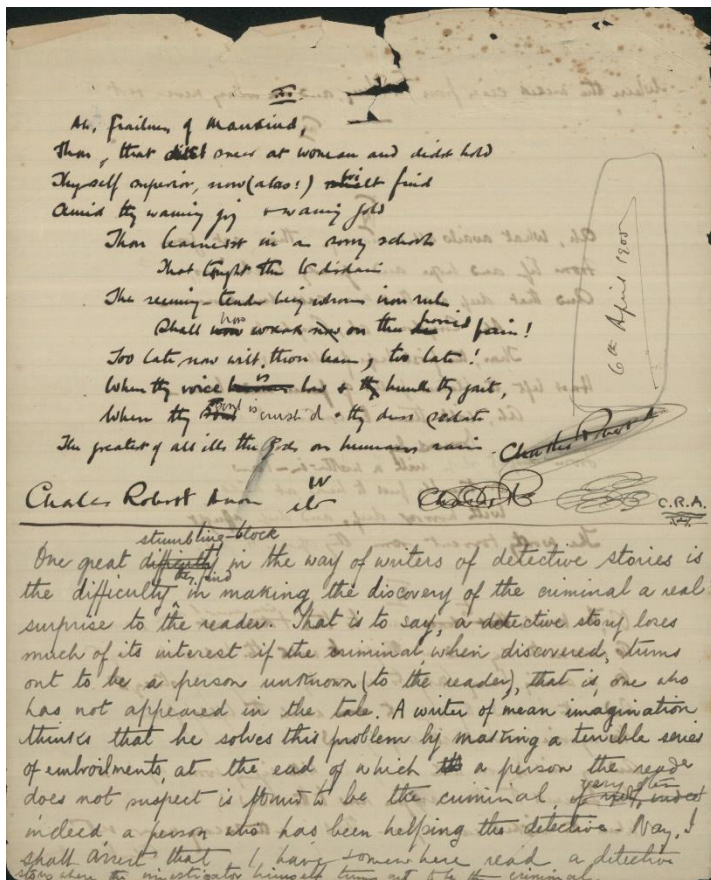 III.
Ah, frailness of Mankind,
Thou, that didst sneer at woman and didst hold
Thyself superior, now (alas!) find
Amid thy waning joy & waning gold
Thou learnest in a sorry school
That taught thee to disdain
The seeming-tender being whose iron rule
Shall wreak now on thee horrid pain!
Too late now wilt thou learn, too late!
When thy voice is low & thy humble thy gait,
When thy is crush'd & thy dress sedate
The greatest of all ills the Gods on humans rain.
6th April 1905
Charles Robert Anon
C.R.A.
One great difficulty stumbling-block in the way of writers of detective stories is
the difficulty they find in making the discovery of the criminal a real
surprise to the reader. That is to say, a detective story loses
much of its interest if the criminal, when discovered, turns
out to be a person unknown (to the reader), that is, one who
has not appeared in the tale. A writer of mean imagination
thinks that he solves this problem by making a terrible series
of embroilments, at the end of which a person the reader
does not suspect is found to be the criminal, very often
indeed a person who has been helping the detective - Nay, I
shall assert that I have somewhere read a detective
story where the investigator himself turns out to be the criminal.